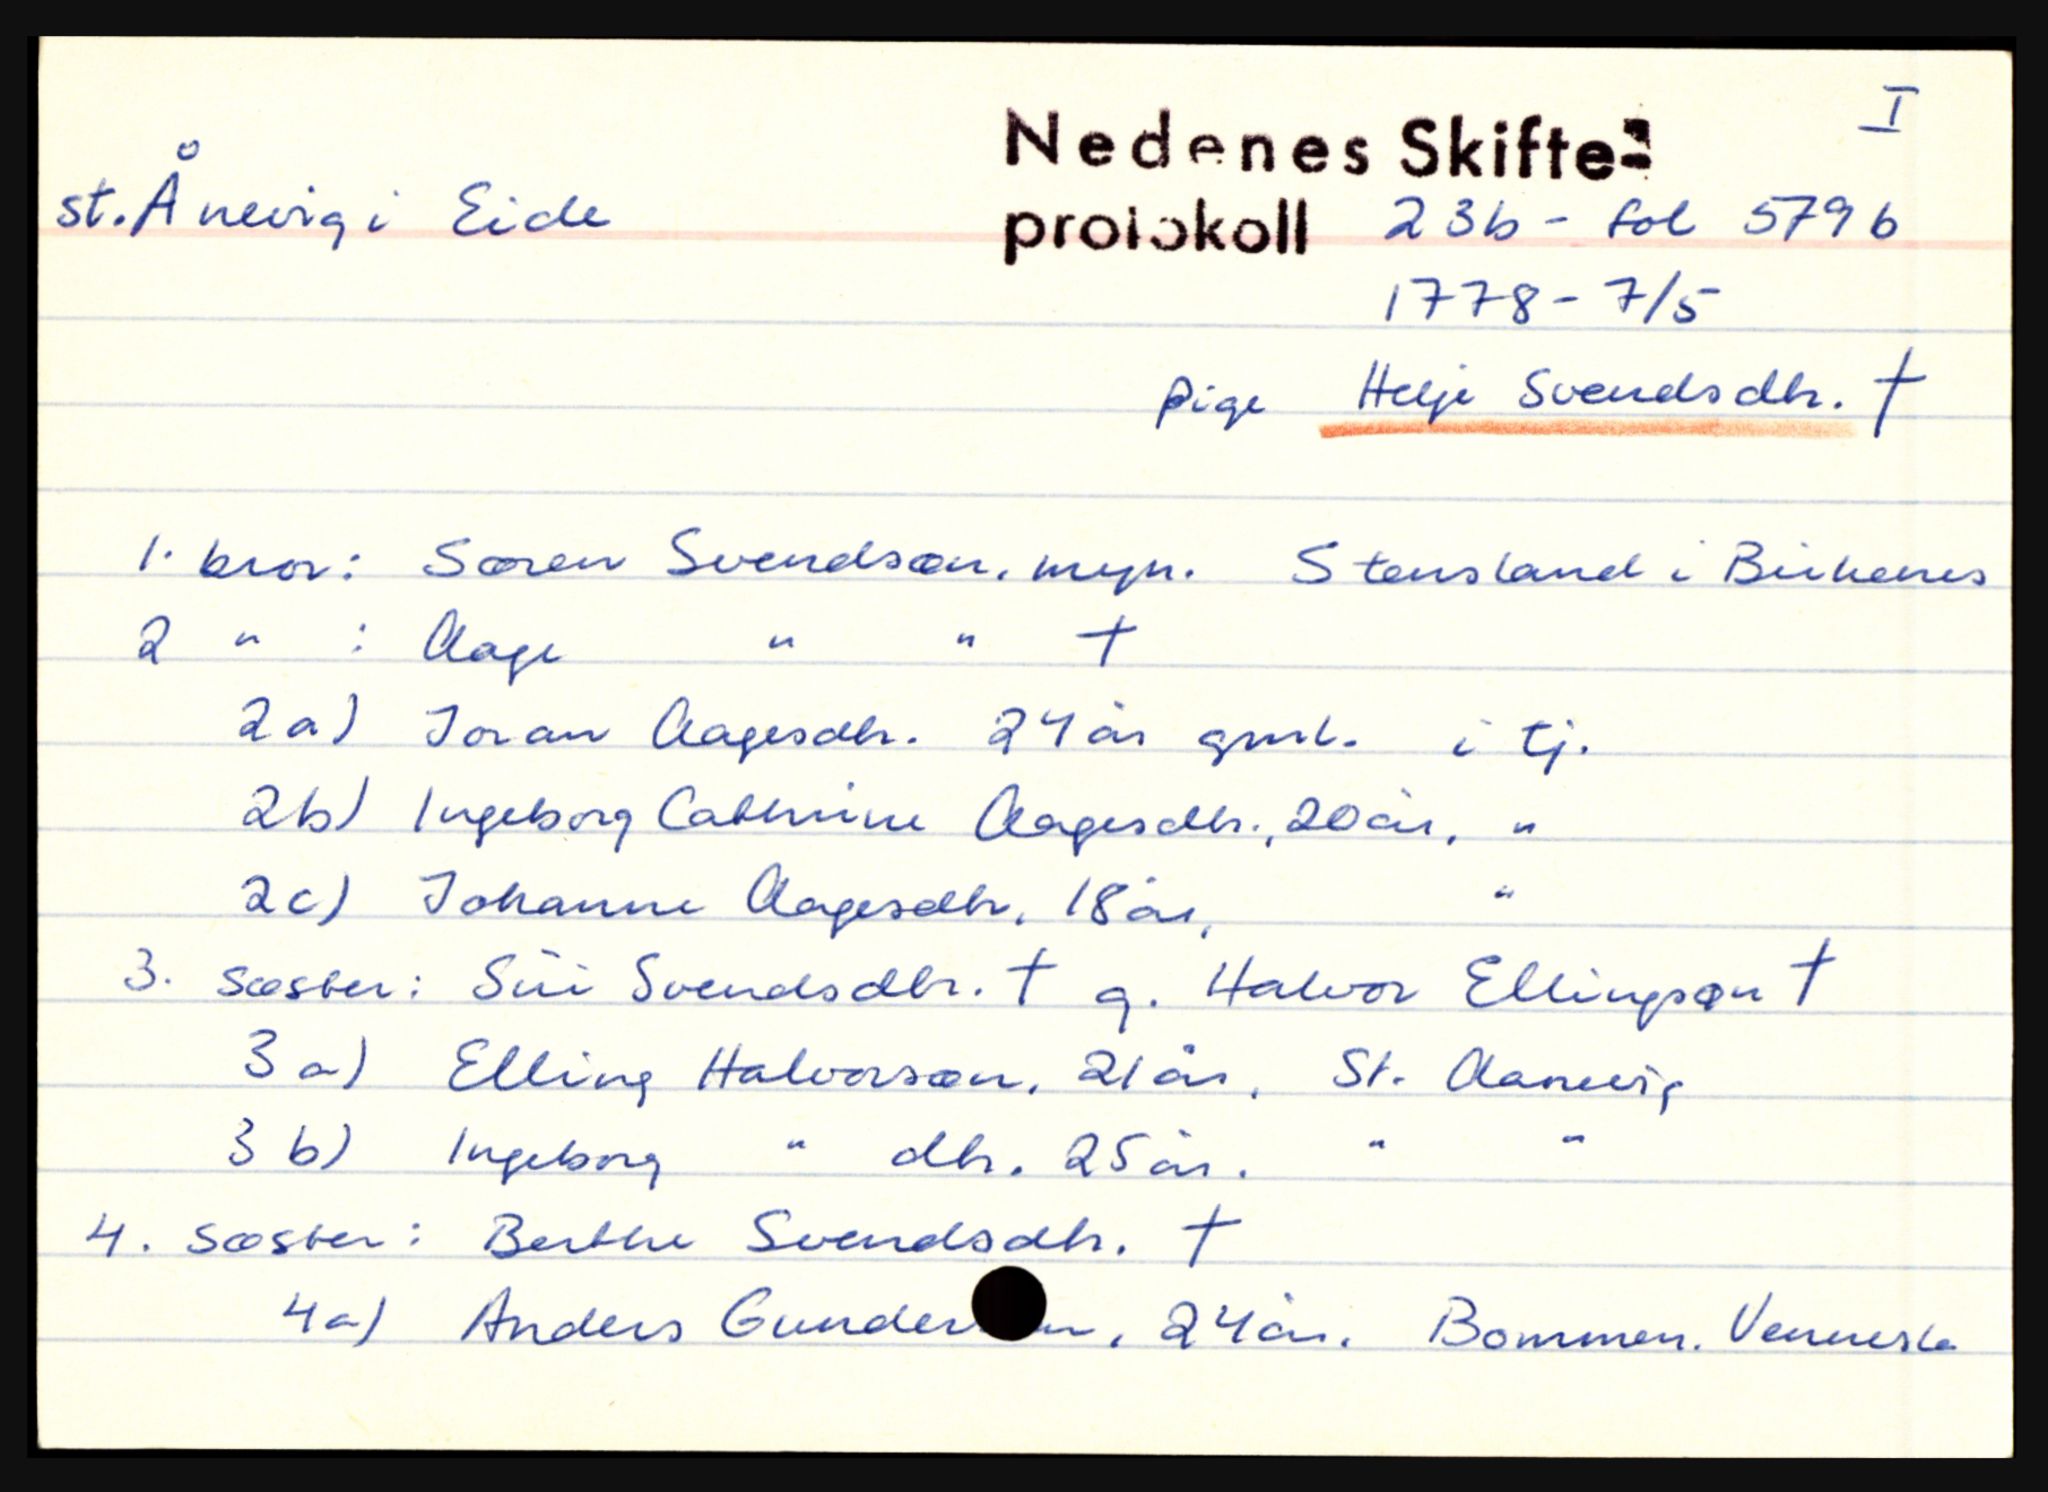 I
Nedenes Skifte-
st. Ånevig i Eide
protokoll 23b - fol 579b
1778 - 7/5
pige Helje Svendsdtr. †
1. bror: Søren Svendsøn, myn. Stensland i Birkenes
2 " : Aage " " †
2a) Joran Aagesdtr. 24 år gml. i tj.
2b) Ingeborg Cathrine Aagesdtr., 20 år, "
2c) Johanne Aagesdtr, 18 år, "
3. søster: Siri Svendsdtr. † g. Halvor Ellingsøn †
3a) Elling Halvorsøn, 21 år, St. Aanevig
3b) Ingeborg " dtr. 25 år. " "
4. søster: Berthe Svendsdtr. †
4a) Anders , 24 år. Bommen. Vennesla